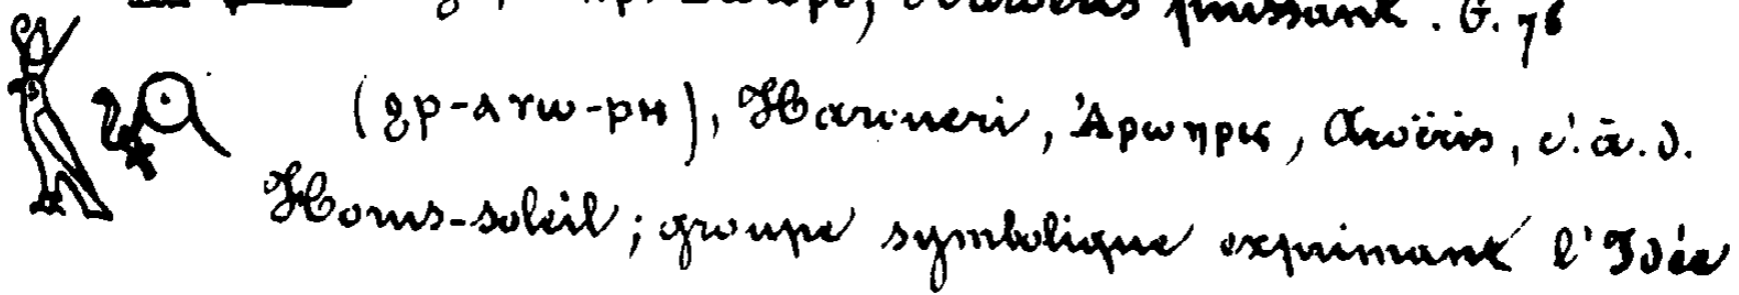 puissant. G. 76
(ϩρ-ⲁⲧω-ρⲏ), Haroueri, Ἀρωηρις, Aroëris, c'. à. d.
Horus-soleil; groupe symbolique exprimant l'Idée